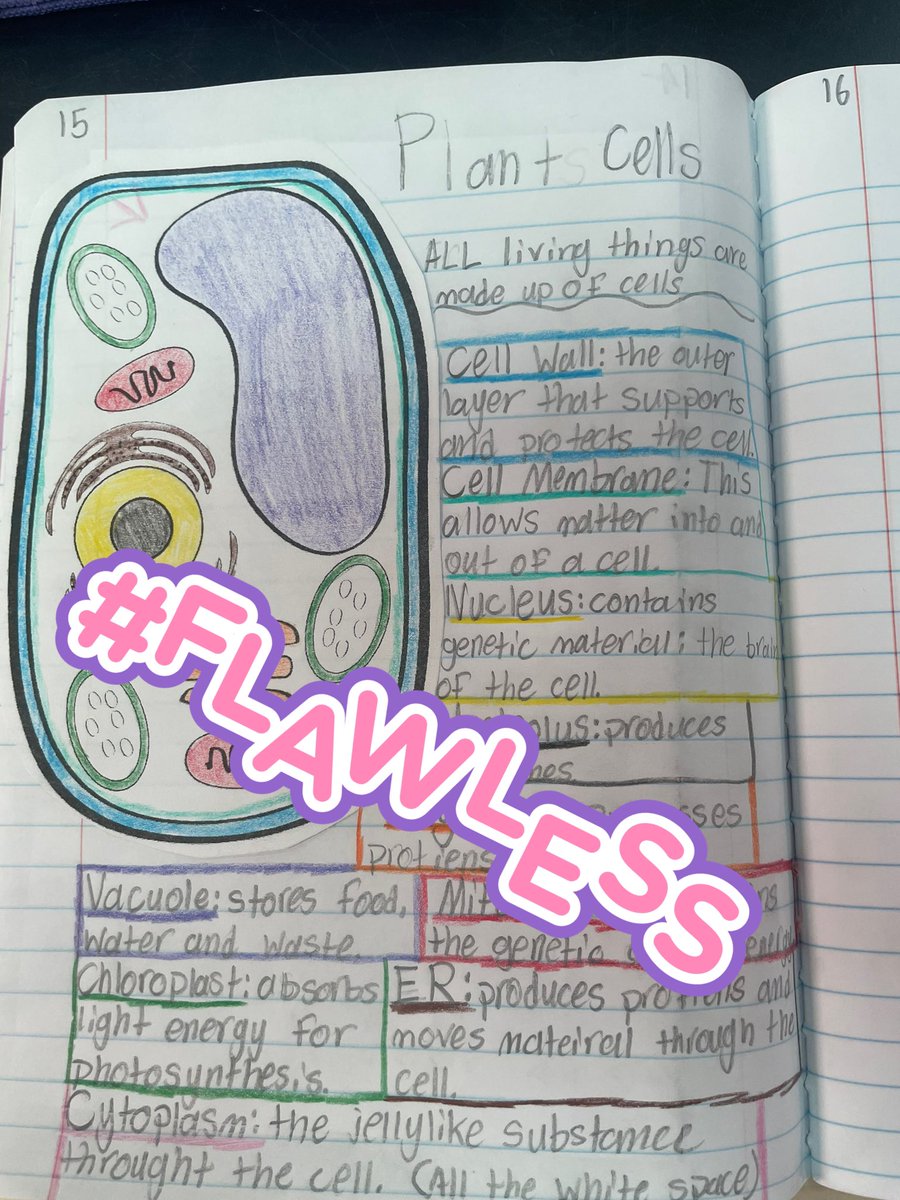 15
16
Plant Cells
ALL living things are
made up of cells
Cell Wall: the outer
layer that supports
and protects the cell.
Cell Membrane: This
allows matter into and
out of a cell.
Nucleus: contains
genetic material; the brain
of the cell.
produces
protiens
Vacuole: stores food,
water and waste.
the genetic
Chloroplast: absorbs
light energy for
photosynthesis.
ER: produces protiens and
moves mateiral through the
cell.
Cytoplasm: the jellylike substance
throught the cell. (All the white space)
#FLAWLESS